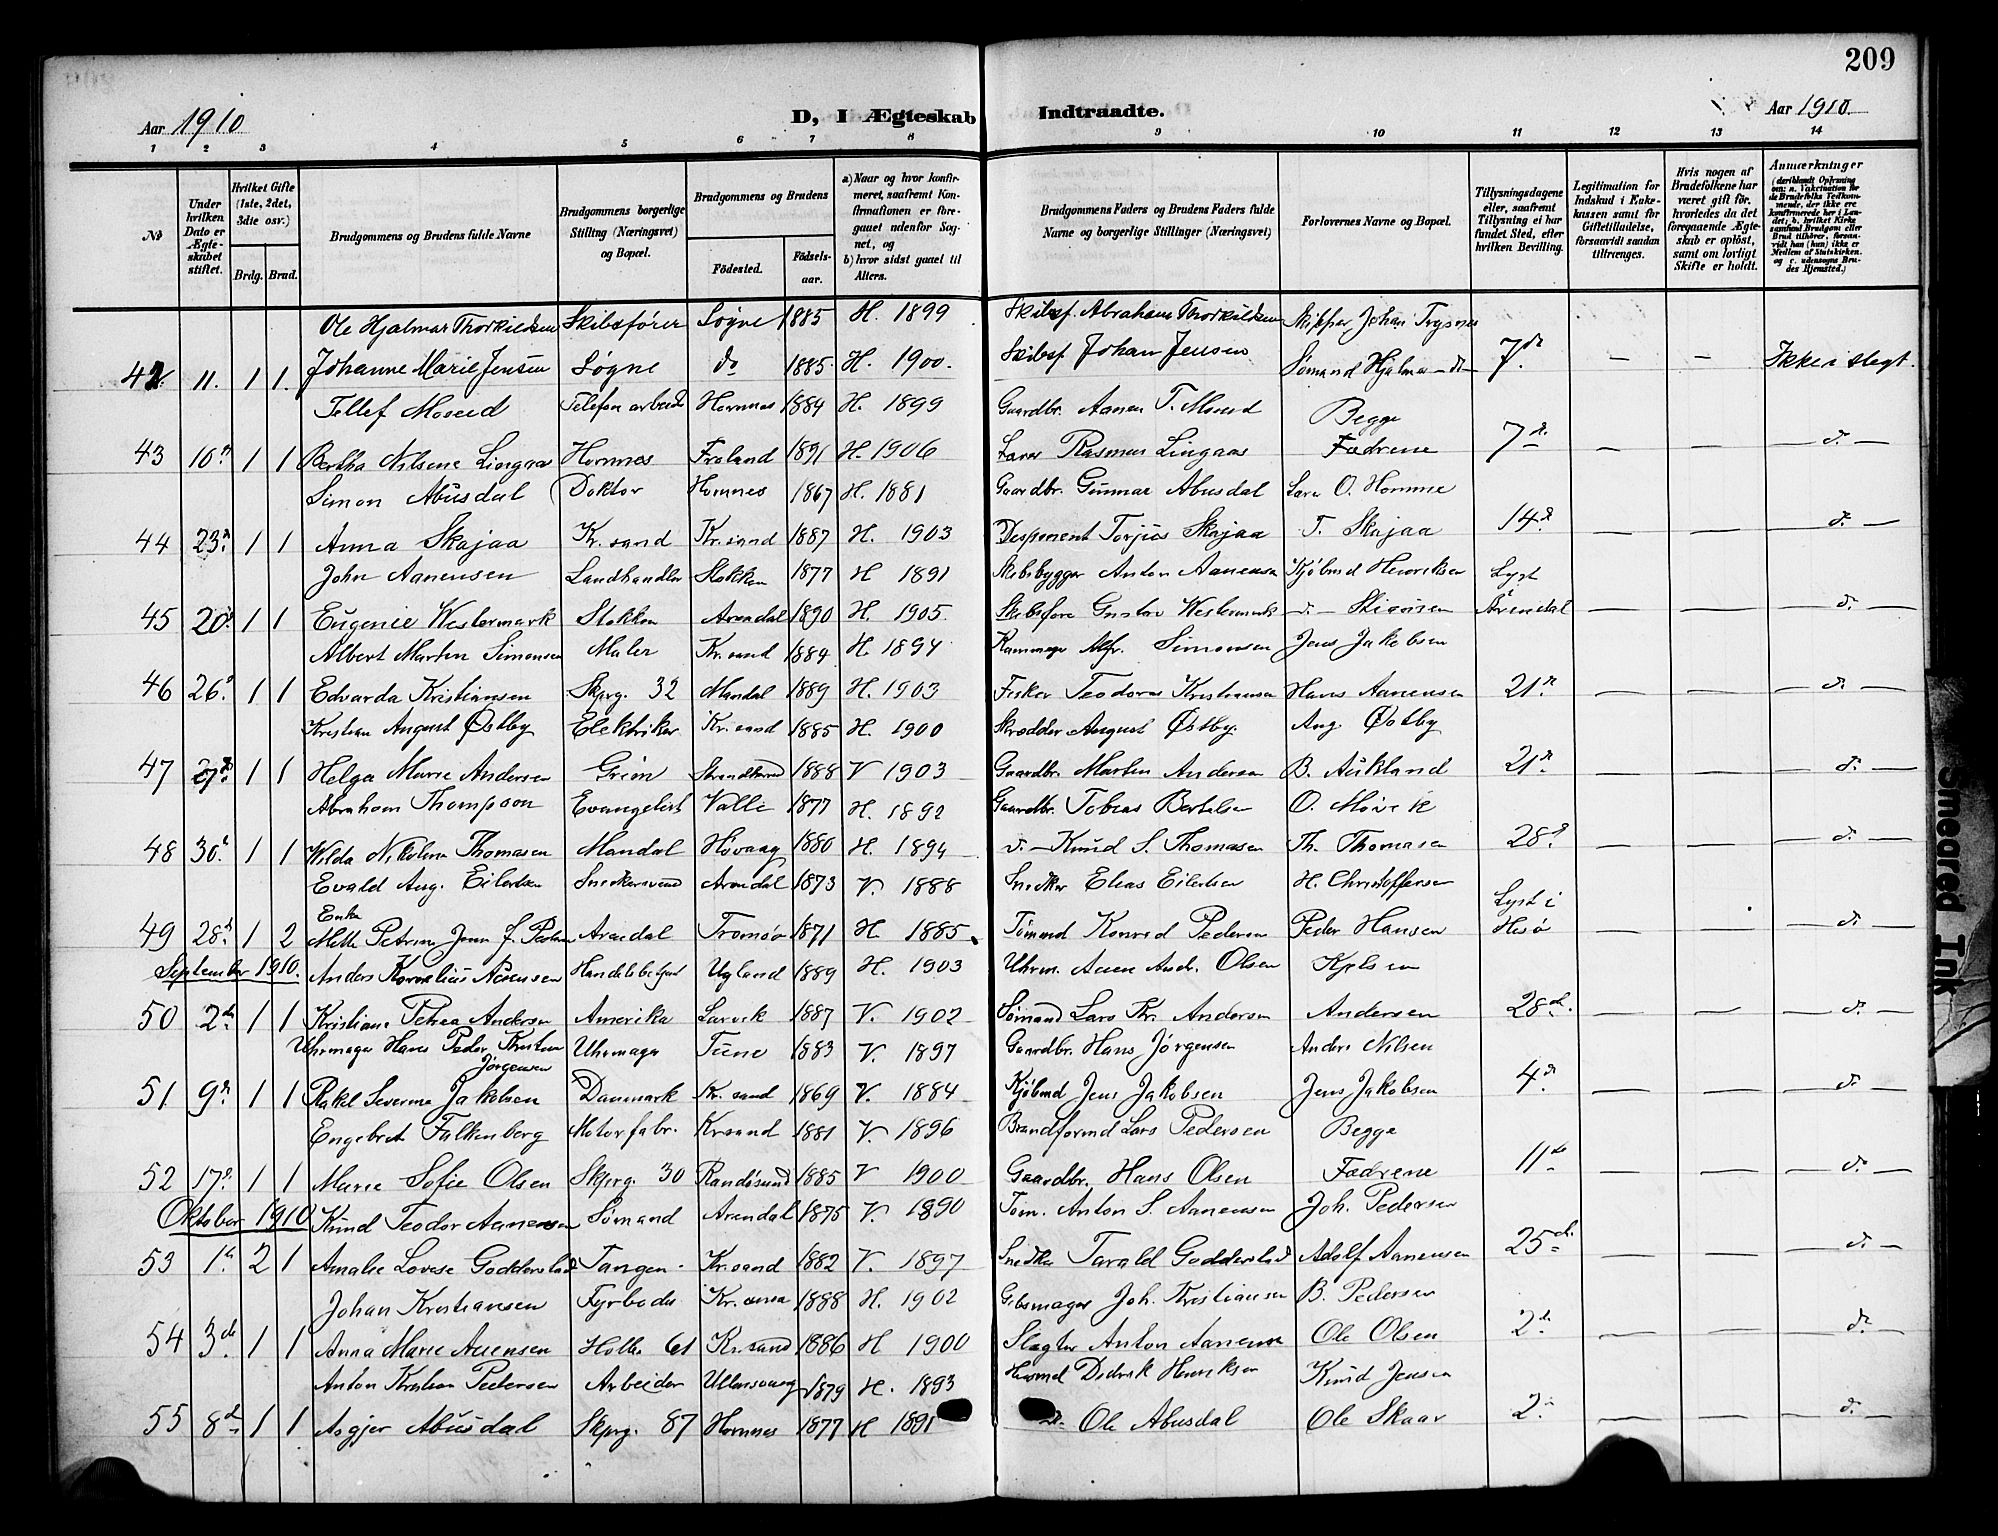 209
Aar 1910
D, I Ægteskab Indtraadte.
Aar 1910.
1 2 3 4 5 6 7 8 9 10 11 12 13 14
№
Under hvilken Dato er Ægteskabet stiftet.
Hvilket Gifte (1ste, 2det, 3die osv.)
Brdg. Brud.
Brudgommens og Brudens fulde Navne
Brudgommens borgerlige Stilling (Næringsvei) og Bopæl.
Brudgommens og Brudens
Fødested.
Fødselsaar.
a) Naar og hvor konfirmeret, saafremt Konfirmationen er foregaaet udenfor Sognet, og
b) hvor sidst gaaet til Alters.
Brudgommens Faders og Brudens Faders fulde Navne og borgerlige Stillinger (Næringsvei)
Forlovernes Navne og Bopæl.
Tillysningsdagene eller, saafremt Tillysning ei har fundet Sted, efter hvilken Bevilling.
Legitimation for Indskud i Enkekassen samt for Giftetilladelse, forsaavidt saadan tiltrænges.
Hvis nogen af Brudefolkene har været gift før, hvorledes da det foregaaende Ægteskab er opløst, samt om lovligt Skifte er holdt.
Anmærkninger
Ole Hjalmar Thorkildsen Skibsfører Søgne 1885 H. 1899 Skibsf. Abraham Thorkildsen Skipper Johan Trysnes
42 11. 1 1. Johanne Marie Jensen Søgne do 1885 H. 1900 Skibsf. Johan Jensen Sømand Hjalmar -d- 7de — — Ikke i slegt.
Tellef Moseid Telefonarbeide Hornnes 1884 H. 1899 Gaardbr. Aanen T. Moseid Begge
43 10de 1 1 Bertha Nilsine Lingaas Hornnes Froland 1891 H. 1906 Lars Rasmus Lingaas Fædrene 7de — — — d. —
Simon Abusdal Doktor Hornnes 1867 H. 1881 Gaardbr. Gunnar Abusdal Lars O. Homme
44 23d. 1 1 Anna Skajaa Kr.sand Kr.sand 1887 H. 1903 Disponent Torjus Skajaa T. Skajaa 14d — — — d. —
John Aanensen Landhandler Stokken 1877 H 1891 Skibsbygger Anton Aanensen Kjøbmd Henriksen Lyst
45 20d. 1 1 Eugenie Westermark Stokken Arendal 1890 H. 1905. Skibsføre Gustav Westermark -d- i Arendal — — — d. —
Albert Martin Simonsen Maler Kr.sand 1884 H. 1894 Simonsen Jens Jakobsen
46 26d 1 1 Edvarda Kristiansen Skprg. 32 Mandal 1889 H. 1903 Fisker Teodor Kristiansen Hans Aanensen 21d — — — d. —
Kristian August Østby Elektriker Kr.sand 1885 H. 1900 Skrædder August Østby. Aug. Østby
47 27d. 1 1 Helga Marie Andersen Grim 1888 V 1903 Gaardbr. Martin Andersen B. Aukland 21d — — — d. —
Abraham Thompson Evangelist Valle 1877 H. 1892 Gaardbr. Tobias Bertelsen O. Møvik
48 30d. 1 1 Wilda Nikoline Thomasen Mandal Høvaag 1880 H. 1894 d. - Knud S. Thomasen Th. Thomasen 28d — — — d. —
Evald Aug. Eilertsen Snedkersvend Arendal 1873 V. 1888 Snedker Elias Eilertsen H. Christoffersen Lyst i
Enke
49 28d. 1 2 Mette Petrine f. Pedersen Arendal Tromsø 1871 H. 1885. Tømmd Konrad Pedersen Peder Hansen Hisø — — — d. —
September 1910. Anders Kornelius Aanensen Handelsbetjent Vegland 1889 H. 1903 Uhrm. Andr. Olsen
50 2den 1 1 Kristiane Petrea Andersen Amerika Larvik 1887 V. 1902 Sømand Lars Kr. Andersen Andersen 28de. — — — d. —
Uhrmager Hans Peder Kristian Jørgensen Uhrmager Tune 1883 V. 1897 Gaardbr. Hans Jørgensen Anders Nilsen
51 9d. 1 1 Rakel Severine Jakobsen Danmark Kr.sand 1869 V. 1884 Kjøbmd Jens Jakobsen Jens Jakobsen 4d — — — d. —
Engebret Falkenberg Motorfabr. Kr.sand 1881 V. 1896 Brandformd Lars Pedersen Begge
52 17d. 1 1 Marie Sofie Olsen Skprg. 30 Randøsund 1885 V 1900 Gaardbr. Hans Olsen Fædrene 11de — — — d. —
Oktober 1910 Knud Teodor Aanensen Sømand Arendal 1875 V. 1890 Tøm. Anton S. Aanensen Joh. Pedersen
53 1ste 2 1 Amalie Lovise Godderstad Tangen. Kr.sand 1882 V. 1897 Snedker Tarald Godderstad Adolf Aanensen 25de. — — — d. —
Johan Kristiansen Fyrbøder Kr.sand 1888 H. 1902 Gibsmager Joh. Kristiansen B. Pedersen
54 3de. 1 1 Anna Marie Aanensen Holb. 61 Kr.sand 1886 H 1900 Slagter Anton Aanensen Ole Olsen 2de. — — — d. —
Anton Kristian Pedersen Arbeider 1879 H. 1893 Husmd Didrik Henriksen Knud Jensen
55 8de 1 1 Asgjer Abusdal Skprg. 87 Hornnes 1877 H 1891 d. Ole Abusdal Ole Skaar 2d. — — — d. —
Smeared Ink